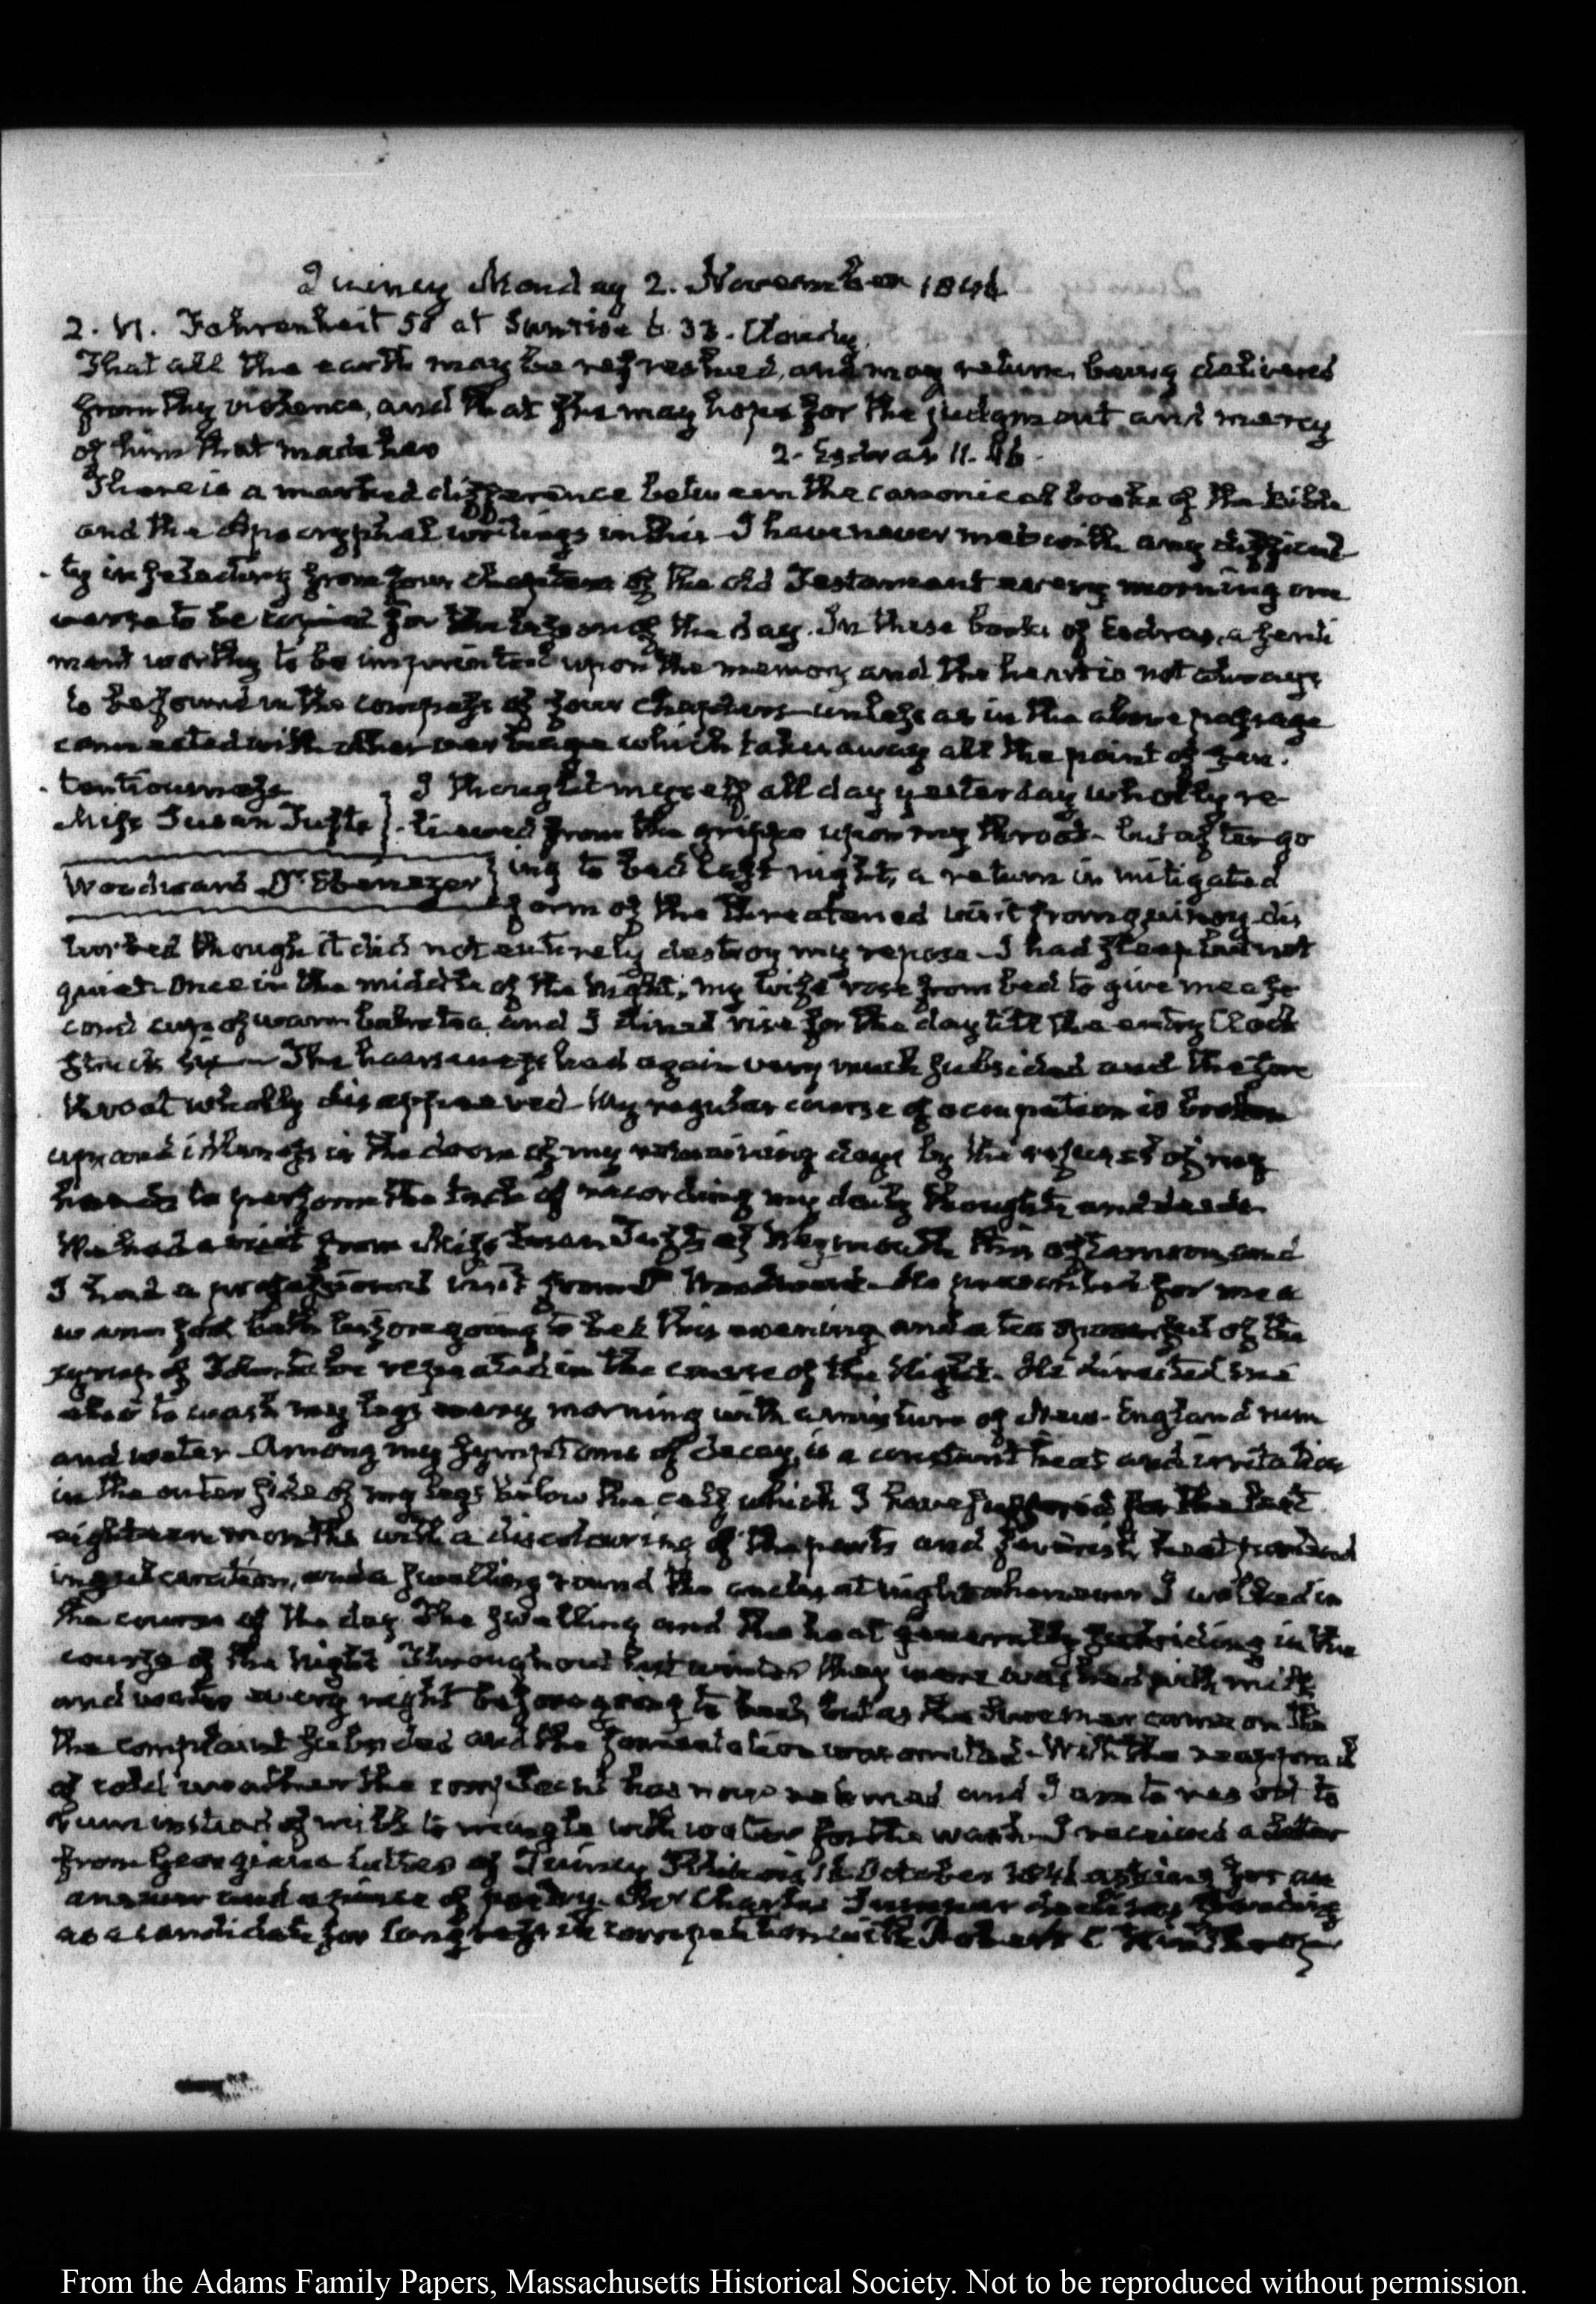 Quincy Monday 2. November 1846
2. VI. Fahrenheit 58 at Sunrise 6.33. Cloudy.
That all the earth may be refreshed, and may return, being delivered
from thy violence, and that she may hope for the judgment and mercy
of him that made her 2. Esdras 11. 46.
There is a marked difference between the canonical books of the Bible
and the Apocryphal writings in this I have never met with any difficul
ty in selecting from four chapters of the Old Testament every morning one
verse to be copied for the lesson of the day. In these books of Esdras, a senti
ment worthy to be imprinted upon the memory and the heart is not always
to be found in the compass of four Chapters unless as in the above passage
connected with other verbiage which takes away all the point of sen-
tentiousness I thought myself all day yesterday wholly re-
Miss Susan Tufts lieved from the grippe upon my throat - but after go
Woodward Dr. Ebenezer ing to bed last night, a return in mitigated
form of the threatened visit from quinsy dis
turbed though it did not entirely destroy my repose. I had sleep but not
quiet. Once in the middle of the night, my wife rose from bed to give me a se
cond cup of warm balm tea, and I did not rise for the day till the entry Clock
struck six. The hoarseness had again very much subsided and the sore
throat wholly disappeared. My regular course of occupation is broken
up and idleness is the doom of my remaining days by the refusal of my
hands to perform the task of recording my daily thoughts and deeds.
We had a visit from Miss Susan Tufts of Weymouth this afternoon, and
I had a professional visit from Dr. Woodward. He prescribed for me a
warm foot bath before going to bed this evening and a tea spoonful of the
syrup of to be repeated in the course of the Night. He directed me
also to wash my legs every morning with a mixture of New-England rum
and water. Among my symptoms of decay, is a constant heat and irritation
in the outer side of my legs below the calf which I have suffered for the last
eighteen months with a discolouring of the parts and feverish heat
ing ulceration, and a swelling round the ancles at night whenever I walked in
the course of the day. The swelling and the heat generally subsiding in the
course of the night. Throughout last winter they were washed with milk
and water every night before going to bed, but as the Summer came on the
the complaint subsided and the fomentation was omitted. With the reapproach
of cold weather the complaint has now returned and I am to resort to
rum instead of milk to mingle with water for the wash. I received a Letter
from Georgiana of Quincy Illinois October 1846 asking for an
answer and a piece of poetry. Mr Charles Sumner declines standing
as a candidate for Congress in competition with Robert C Winthrop
From the Adams Family Papers, Massachusetts Historical Society. Not to be reproduced without permission.